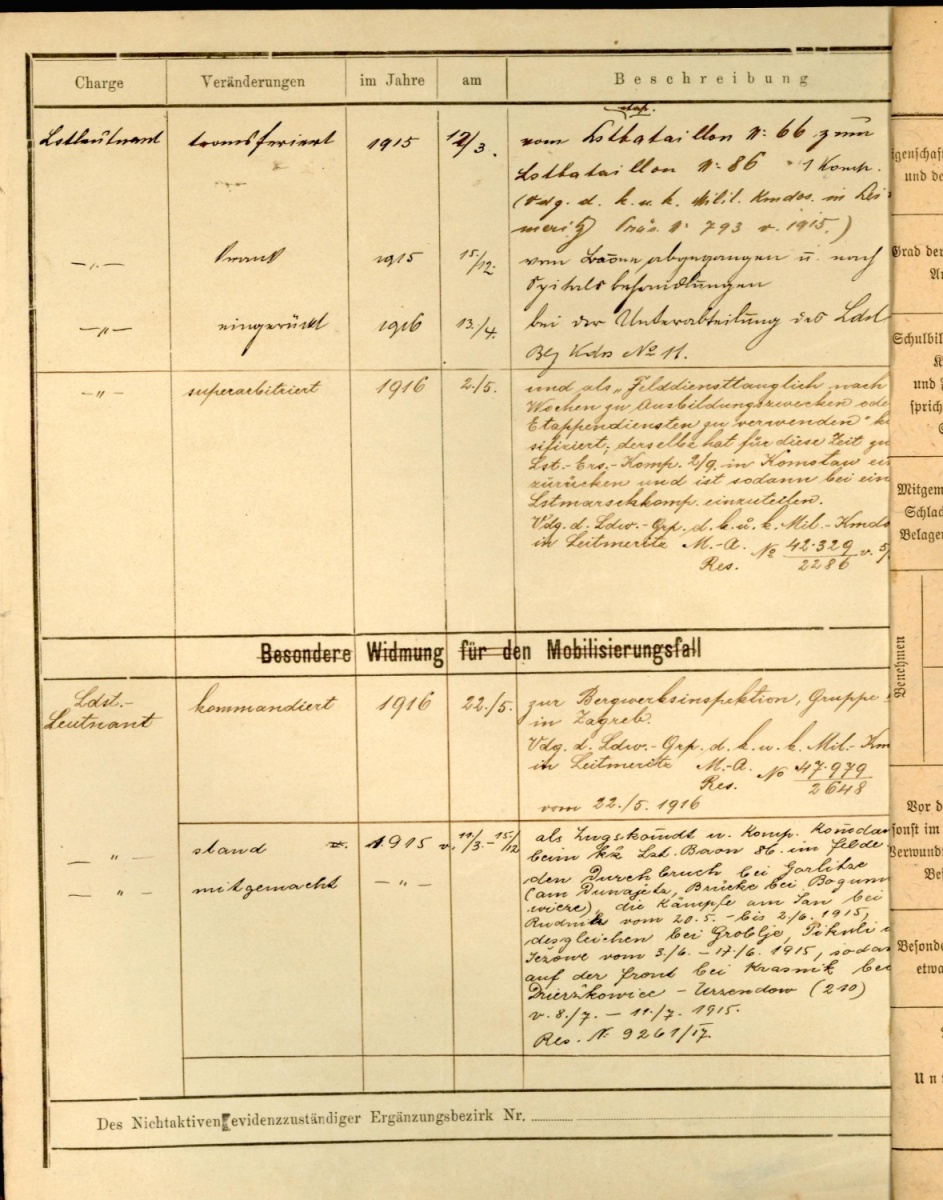 Charge Veränderungen im Jahre am Beschreibung
etap.
Lstleutnant transferiert 1915 12/3. vom Lstbataillon N: 66 zum
Lstbataillon N: 86 1 Komp.
(Vdg. d. k. u. k. Milit. Kmdos. in Lei-
meritz Präs. N: 793 v. 1915.)
— „ — krank 1915 15/12. vom Baone abgegangen u. nach
Spitalsbehandlungen
— „ — eingerückt 1916 13./4. bei der Unterabteilung des Ldst
Kdos No 11.
— „ — superarbitriert 1916 2./5. und als „Felddiensttauglich nach
Wochen zu Ausbildungszwecken ode
Etappendiensten zu verwenden" k
sifiziert; derselbe hat für diese Zeit zu
Lst.-Ers.-Komp. 2/9. in Komotau ei
zurücken und ist sodann bei ein
Lstmarschkomp. einzuteilen.
Vdg. d. Ldw.- Grp. d. k. u. k. Mil.- Kmdo
in Leitmeritz M.-A. Res. No 42.329/2286 v. 5/
Besondere Widmung für den Mobilisierungsfall
Ldst.-
Leutnant kommandiert 1916 22./5. zur Bergwerksinspektion, Gruppe
in Zagreb.
Vdg. d. Ldw.- Grp. d. k. u. k. Mil.- Km
in Leitmeritz M.-A. Res. No 47.979/2648
vom 22./5. 1916
— „ — stand 1915 v. 11./3.- 15./12 als Zugskomdt u. Komp. Komdan
beim kk Lst. Baon 86. im Felde
— „ — mitgemacht — „ — den Durchbruch bei Gorlitze
(am Dunajetz, Brücke bei Bogum
wicze), die Kämpfe am San bei
Rudnik vom 20.5. - bis 2./6. 1915,
desgleichen bei Groblje, Pikuli
Ježowe vom 3./6. - 17./6. 1915, sodan
auf der Front bei Krasnik bei
Dzierzkowice - Urzendow (210)
v. 8./7. - 11./7. 1915.
Res. N: 9261/IV.
Des Nichtaktiven evidenzzuständiger Ergänzungsbezirk Nr.
igenschaft
und de
Grad der
Schulbil
und
sprich
Mitgem
Schlac
Belager
Benehmen
Vor d
sonst im
Verwund
Besonde
etwa